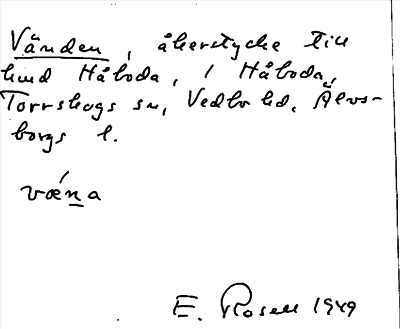 Vänden, åkerstycke till
hmd Håboda, i Håboda,
Torrskogs sn, Vedbo hd, Älvs-
borgs l.
vǽna
E. Rosell 1949